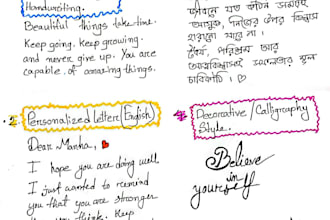 Handwriting.
Beautiful things take time.
Keep going, keep growing.
and never give up. You are
capable of amazing things.
জীবনে যত কঠিন সময়ই
আসুক, নিজের উপর বিশ্বাস
হারানো যাবে না।
ধৈর্য, পরিশ্রম আর
আত্মবিশ্বাসই সফলতার মূল
চাবিকাঠি।
2
Personalized Letter (English)
Dear Manha,
I hope you are doing well
I just wanted to remind
you that you are stronger
you think. Keep
4
Decorative/Calligraphy
Style.
Believe
in
yourself